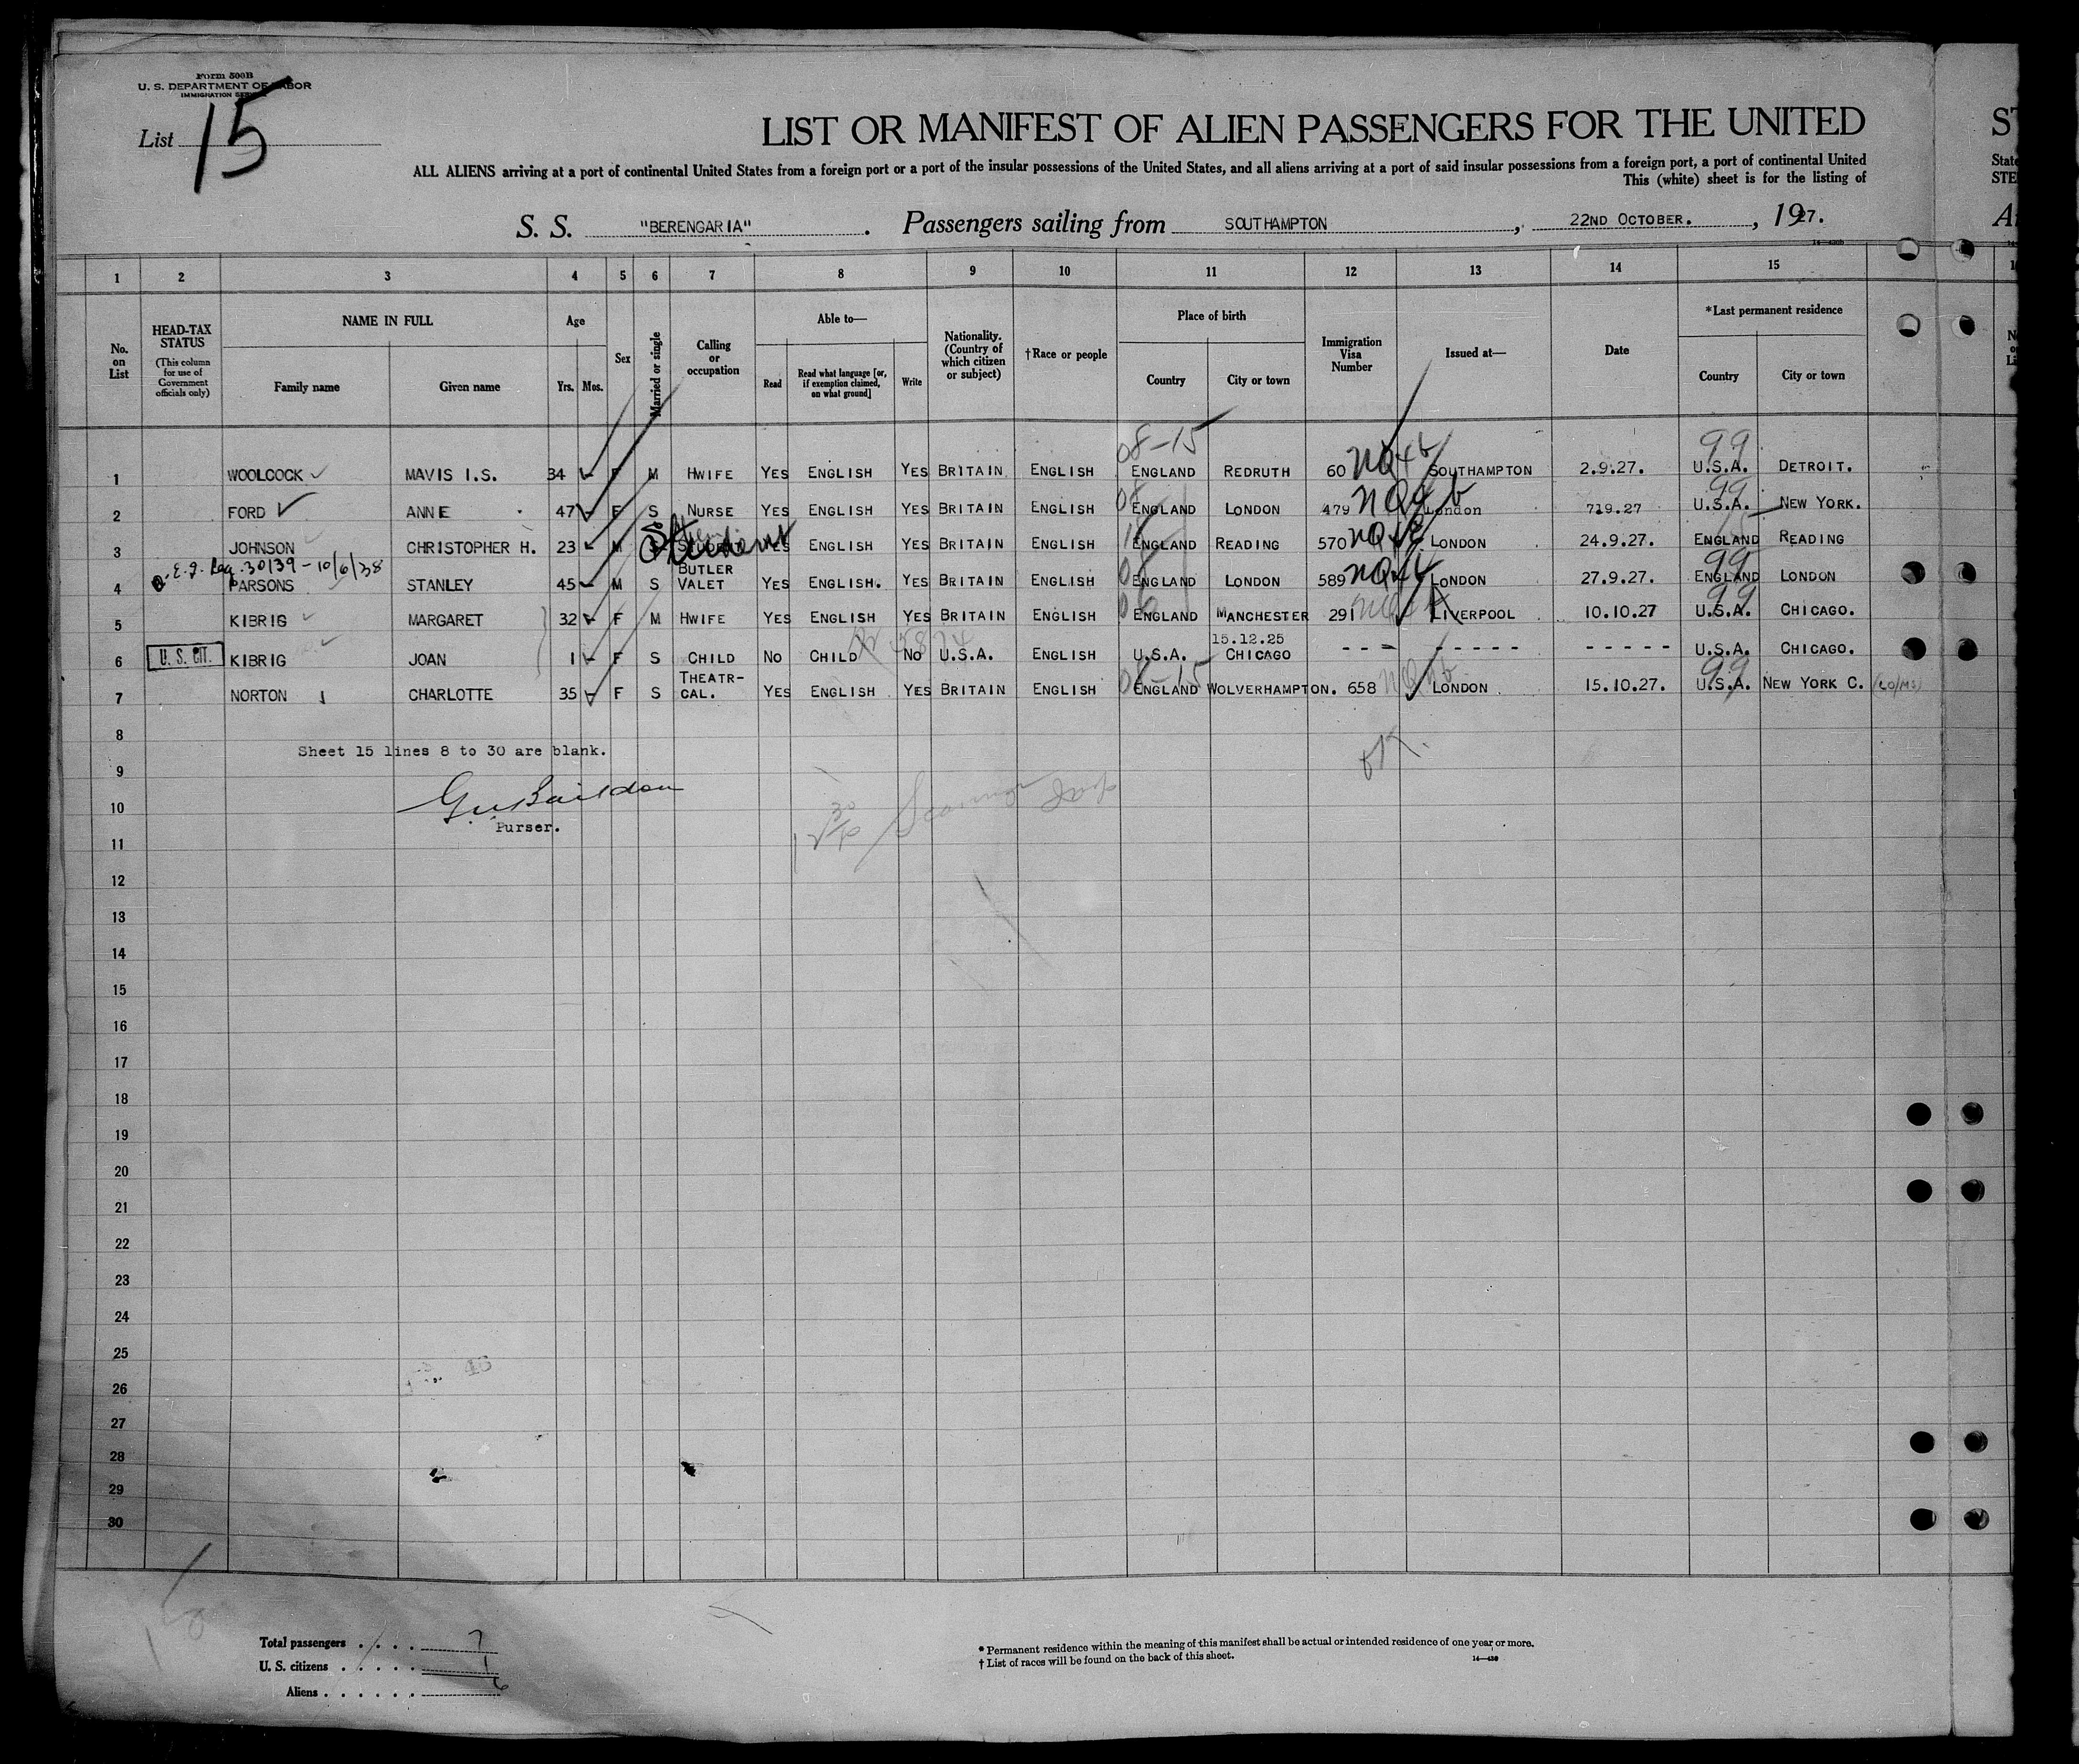 Form 500B
U. S. DEPARTMENT OF LABOR
IMMIGRATION SERVICE
List 15
LIST OR MANIFEST OF ALIEN PASSENGERS FOR THE UNITED
ALL ALIENS arriving at a port of continental United States from a foreign port or a port of the insular possessions of the United States, and all aliens arriving at a port of said insular possessions from a foreign port, a port of continental United
This (white) sheet is for the listing of
S. S. "BERENGARIA". Passengers sailing from SOUTHAMPTON, 22ND OCTOBER., 1927.
1 2 3 4 5 6 7 8 9 10 11 12 13 14 15
No. on List
HEAD-TAX STATUS (This column for use of Government officials only)
NAME IN FULL
Family name Given name
Age
Yrs. Mos.
Sex
Married or single
Calling or occupation
Able to—
Read Read what language [or, if exemption claimed, on what ground] Write
Nationality. (Country of which citizen or subject)
†Race or people
Place of birth
Country City or town
Immigration Visa Number
Issued at—
Date
*Last permanent residence
Country City or town
08-15 99
1 WOOLCOCK MAVIS I.S. 34 F M HWIFE YES ENGLISH YES BRITAIN ENGLISH ENGLAND REDRUTH 60 NQ4b SOUTHAMPTON 2.9.27. U.S.A. DETROIT.
99
2 FORD ANNE 47 F S NURSE YES ENGLISH YES BRITAIN ENGLISH 08 ENGLAND LONDON 479 NQ4b London 719.27 U.S.A. NEW YORK.
3 JOHNSON CHRISTOPHER H. 23 M S Student YES ENGLISH YES BRITAIN ENGLISH ENGLAND READING 570 LONDON 24.9.27. ENGLAND READING
30139-10/6/38 99
4 PARSONS STANLEY 45 M S BUTLER VALET YES ENGLISH. YES BRITAIN ENGLISH ENGLAND LONDON 589 LONDON 27.9.27. ENGLAND LONDON
99
5 KIBRIG MARGARET 32 F M HWIFE YES ENGLISH YES BRITAIN ENGLISH ENGLAND MANCHESTER 291 LIVERPOOL 10.10.27 U.S.A. CHICAGO.
15.12.25
6 U.S. CIT. KIBRIG JOAN 1 F S CHILD NO CHILD NO U.S.A. ENGLISH U.S.A. CHICAGO - - - - - - - - - - - - - U.S.A. CHICAGO.
08-15 99
7 NORTON CHARLOTTE 35 F S THEATR-CAL. YES ENGLISH YES BRITAIN ENGLISH ENGLAND WOLVERHAMPTON. 658 LONDON 15.10.27. U.S.A. NEW YORK C.
8
Sheet 15 lines 8 to 30 are blank.
OK.
9
10
Purser.
11
12
13
14
15
16
17
18
19
20
21
22
23
24
25
26
27
28
29
30
Total passengers . . . . 7
U. S. citizens . . . . . 1
Aliens . . . . . . 6
* Permanent residence within the meaning of this manifest shall be actual or intended residence of one year or more.
† List of races will be found on the back of this sheet.
14—430